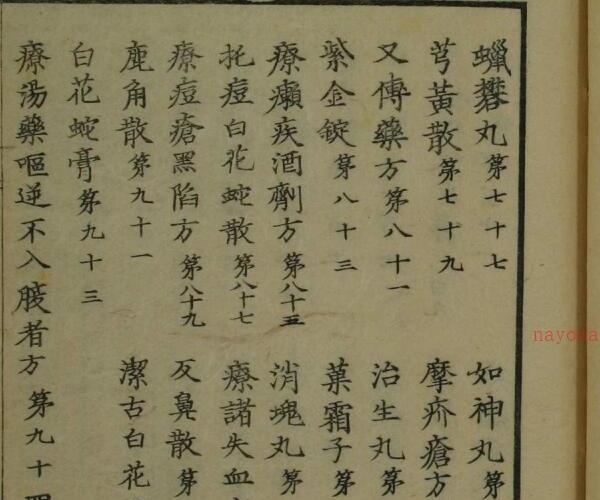 蠟礬丸第七十七 如神丸第
芎黃散第七十九 摩疥瘡方
又傳藥方第八十一 治生丸第
紫金錠第八十三 菓霜子第
療癩疾酒劑方第八十五 消塊丸第
托痘白花蛇散第八十七 療諸失血
療痘瘡黑陷方第八十九 反鼻散第
鹿角散第九十一 潔古白花
白花蛇膏第九十三
療湯藥嘔逆不入腹者方 第九十